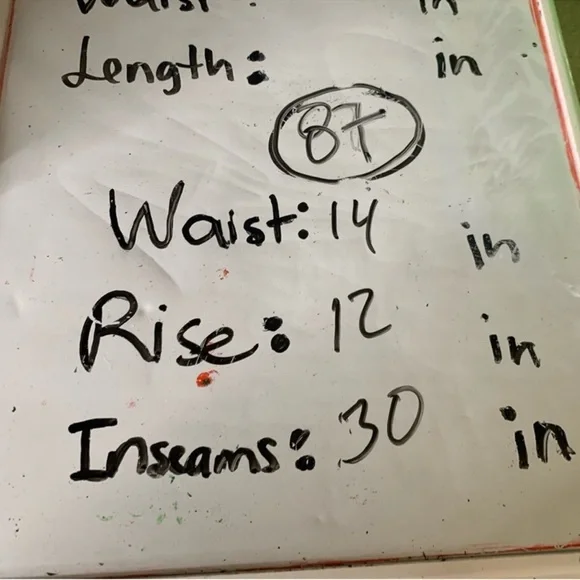 Waist: in
Length: in
87
Waist: 14 in
Rise: 12 in
Inseams: 30 in